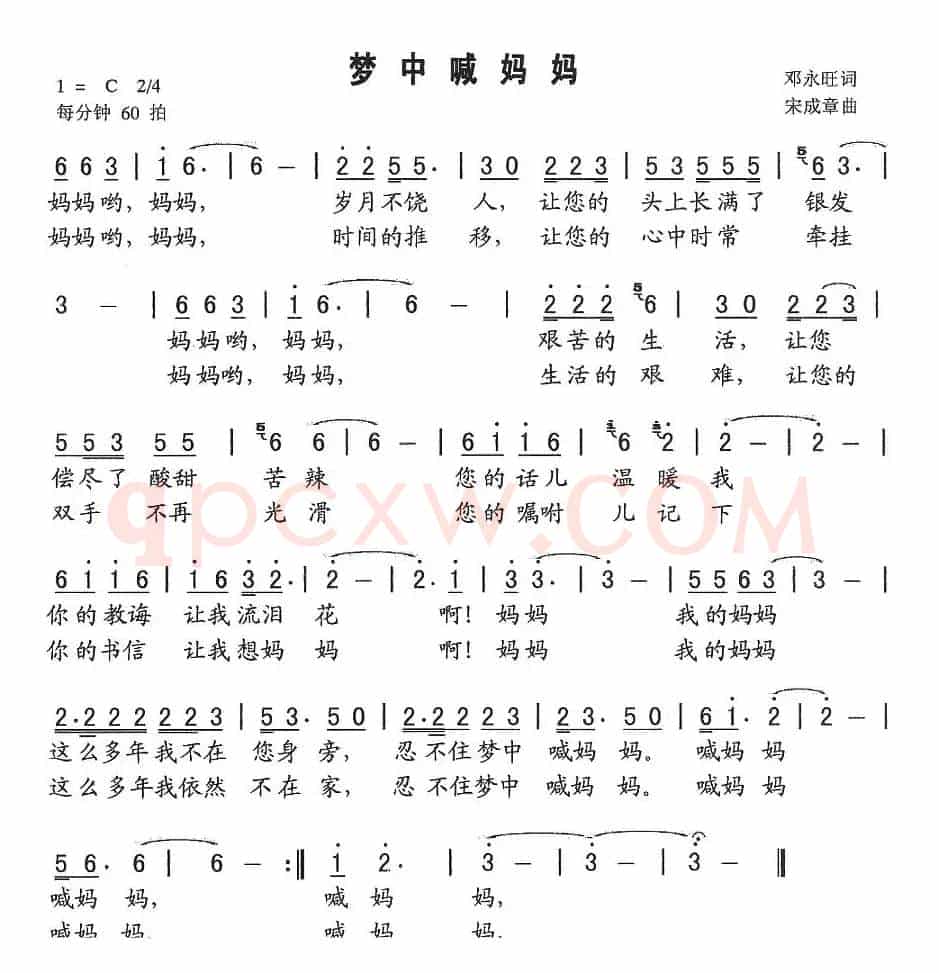 梦中喊妈妈
1 = C 2/4
邓永旺词
每分钟 60 拍
宋成章曲
6 6 3 | 1 6. | 6 – | 2 2 5 5. | 3 0 2 2 3 | 5 3 5 5 5 | 5 6 3. |
妈妈哟，妈妈， 岁月不饶 人，让您的 头上长满了 银发
妈妈哟，妈妈， 时间的推 移，让您的 心中时常 牵挂
3 – | 6 6 3 | 1 6. | 6 – | 2 2 2 5 6 | 3 0 2 2 3 |
妈妈哟，妈妈， 艰苦的 生 活，让您
妈妈哟，妈妈， 生活的 艰 难，让您的
5 5 3 5 5 | 5 6 6 | 6 – | 6 1 1 6 | 6 2 | 2 – | 2 – |
偿尽了 酸甜 苦 辣 您的话儿 温 暖 我
双手 不再 光 滑 您的嘱咐 儿 记 下
qpcxw.com
6 1 1 6 | 1 6 3 2. | 2 – | 2. 1 | 3 3. | 3 – | 5 5 6 3 | 3 – |
你的教诲 让我流泪 花 啊！妈妈 我的妈妈
你的书信 让我想妈 妈 啊！妈妈 我的妈妈
2. 2 2 2 2 2 3 | 5 3. 5 0 | 2. 2 2 2 2 3 | 2 3. 5 0 | 6 1. 2 | 2 – |
这么多年我不在 您身 旁，忍不住梦中 喊妈 妈。喊妈 妈
这么多年我依然 不在 家，忍不住梦中 喊妈 妈。喊妈 妈
5 6. | 6 – :‖ 1 2. | 3 – | 3 – | 3 – ‖
喊妈 妈， 喊妈 妈，
喊妈 妈， 喊妈 妈，